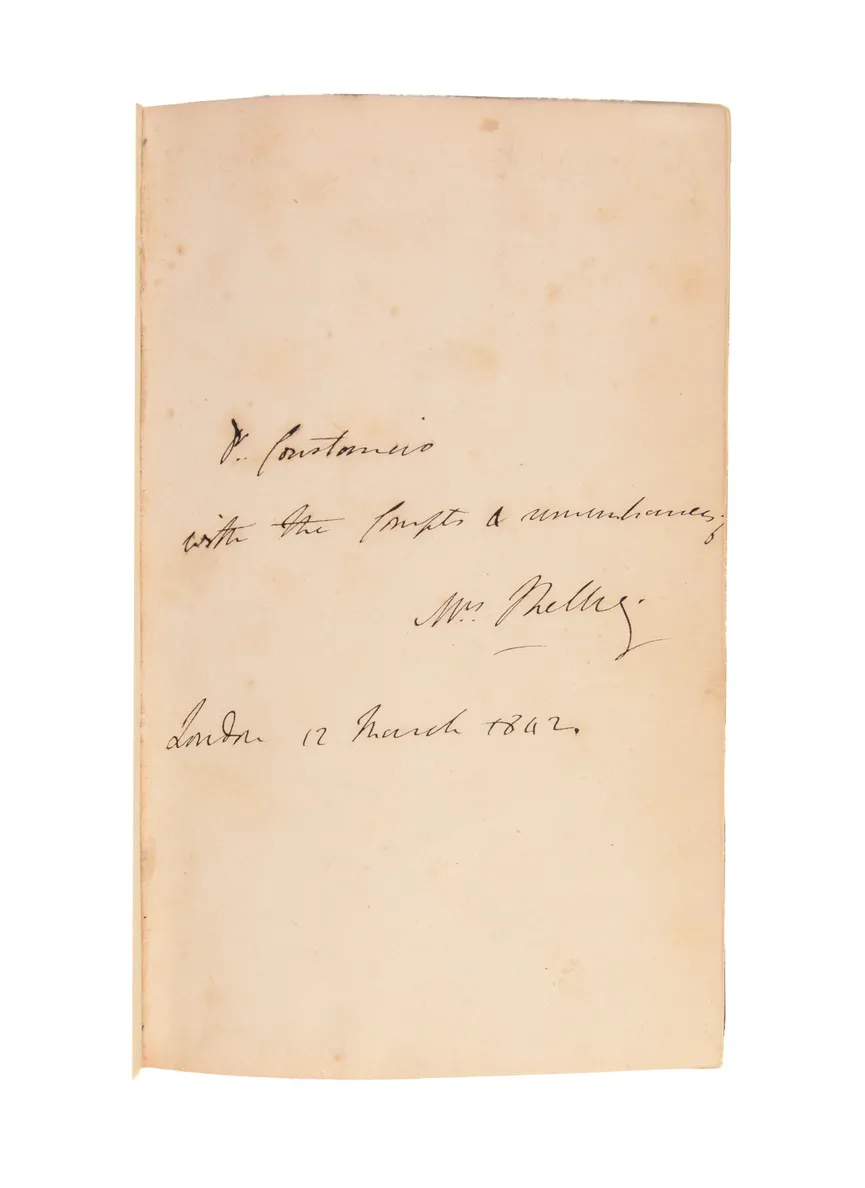 Dr. Constancio
with the Compts & remembrances of
Mrs. Shelley.
London 12 March 1842.